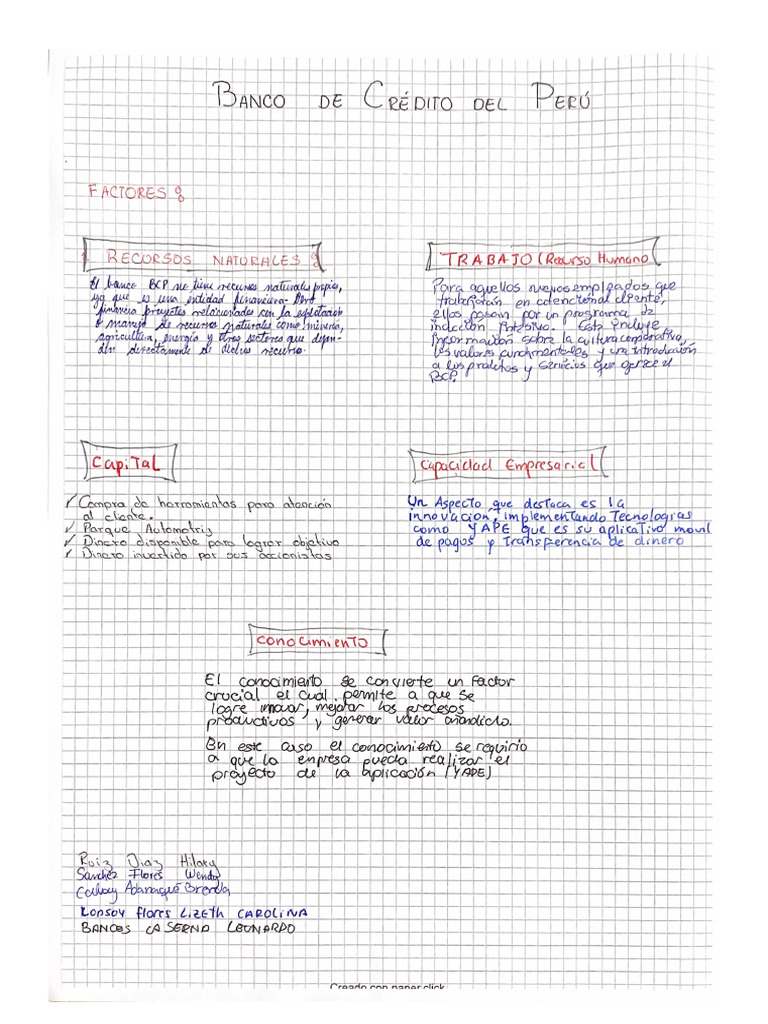 BANCO DE CRÉDITO DEL PERÚ
FACTORES :
RECURSOS NATURALES :
El banco BCP no tiene recursos naturales propios,
ya que es una entidad financiera. Pero
financia proyectos relacionados con la explotación
o manejo de recursos naturales como minería,
agricultura, energía y otros sectores que depen-
den directamente de dichos recursos.
TRABAJO (Recurso Humano
Para aquellos nuevos empleados que
trabajarán en atencional cliente,
ellos pasan por un programa de
inducción intensivo. Esto incluye
información sobre la cultura corporativa,
los valores fundamentales y una introducción
a los productos y servicios que ofrece el
BCP.
CapiTaL
✓ Compra de herramientas para atención
al cliente.
✓ Parque Automotriz
✓ Dinero disponible para lograr objetivo
✓ Dinero invertido por sus accionistas
Capacidad Empresarial
Un Aspecto que destaca es la
innovación, implementando Tecnologías
como YAPE que es su aplicativo movil
de pagos y transferencia de dinero
Conocimiento
El conocimiento se convierte un factor
crucial el cual permite a que se
logre innovar, mejorar los procesos
productivos y generar valor añadido.
En este caso el conocimiento se requirio
a que la empresa pueda realizar el
proyecto de la aplicación (YAPE)
Ruiz Diaz Hilary
Sanchez Flores Wendy
Brenda
Flores Lizeth CAROLINA
BANCES LA SERNA LEONARDO
Creado con paper.click